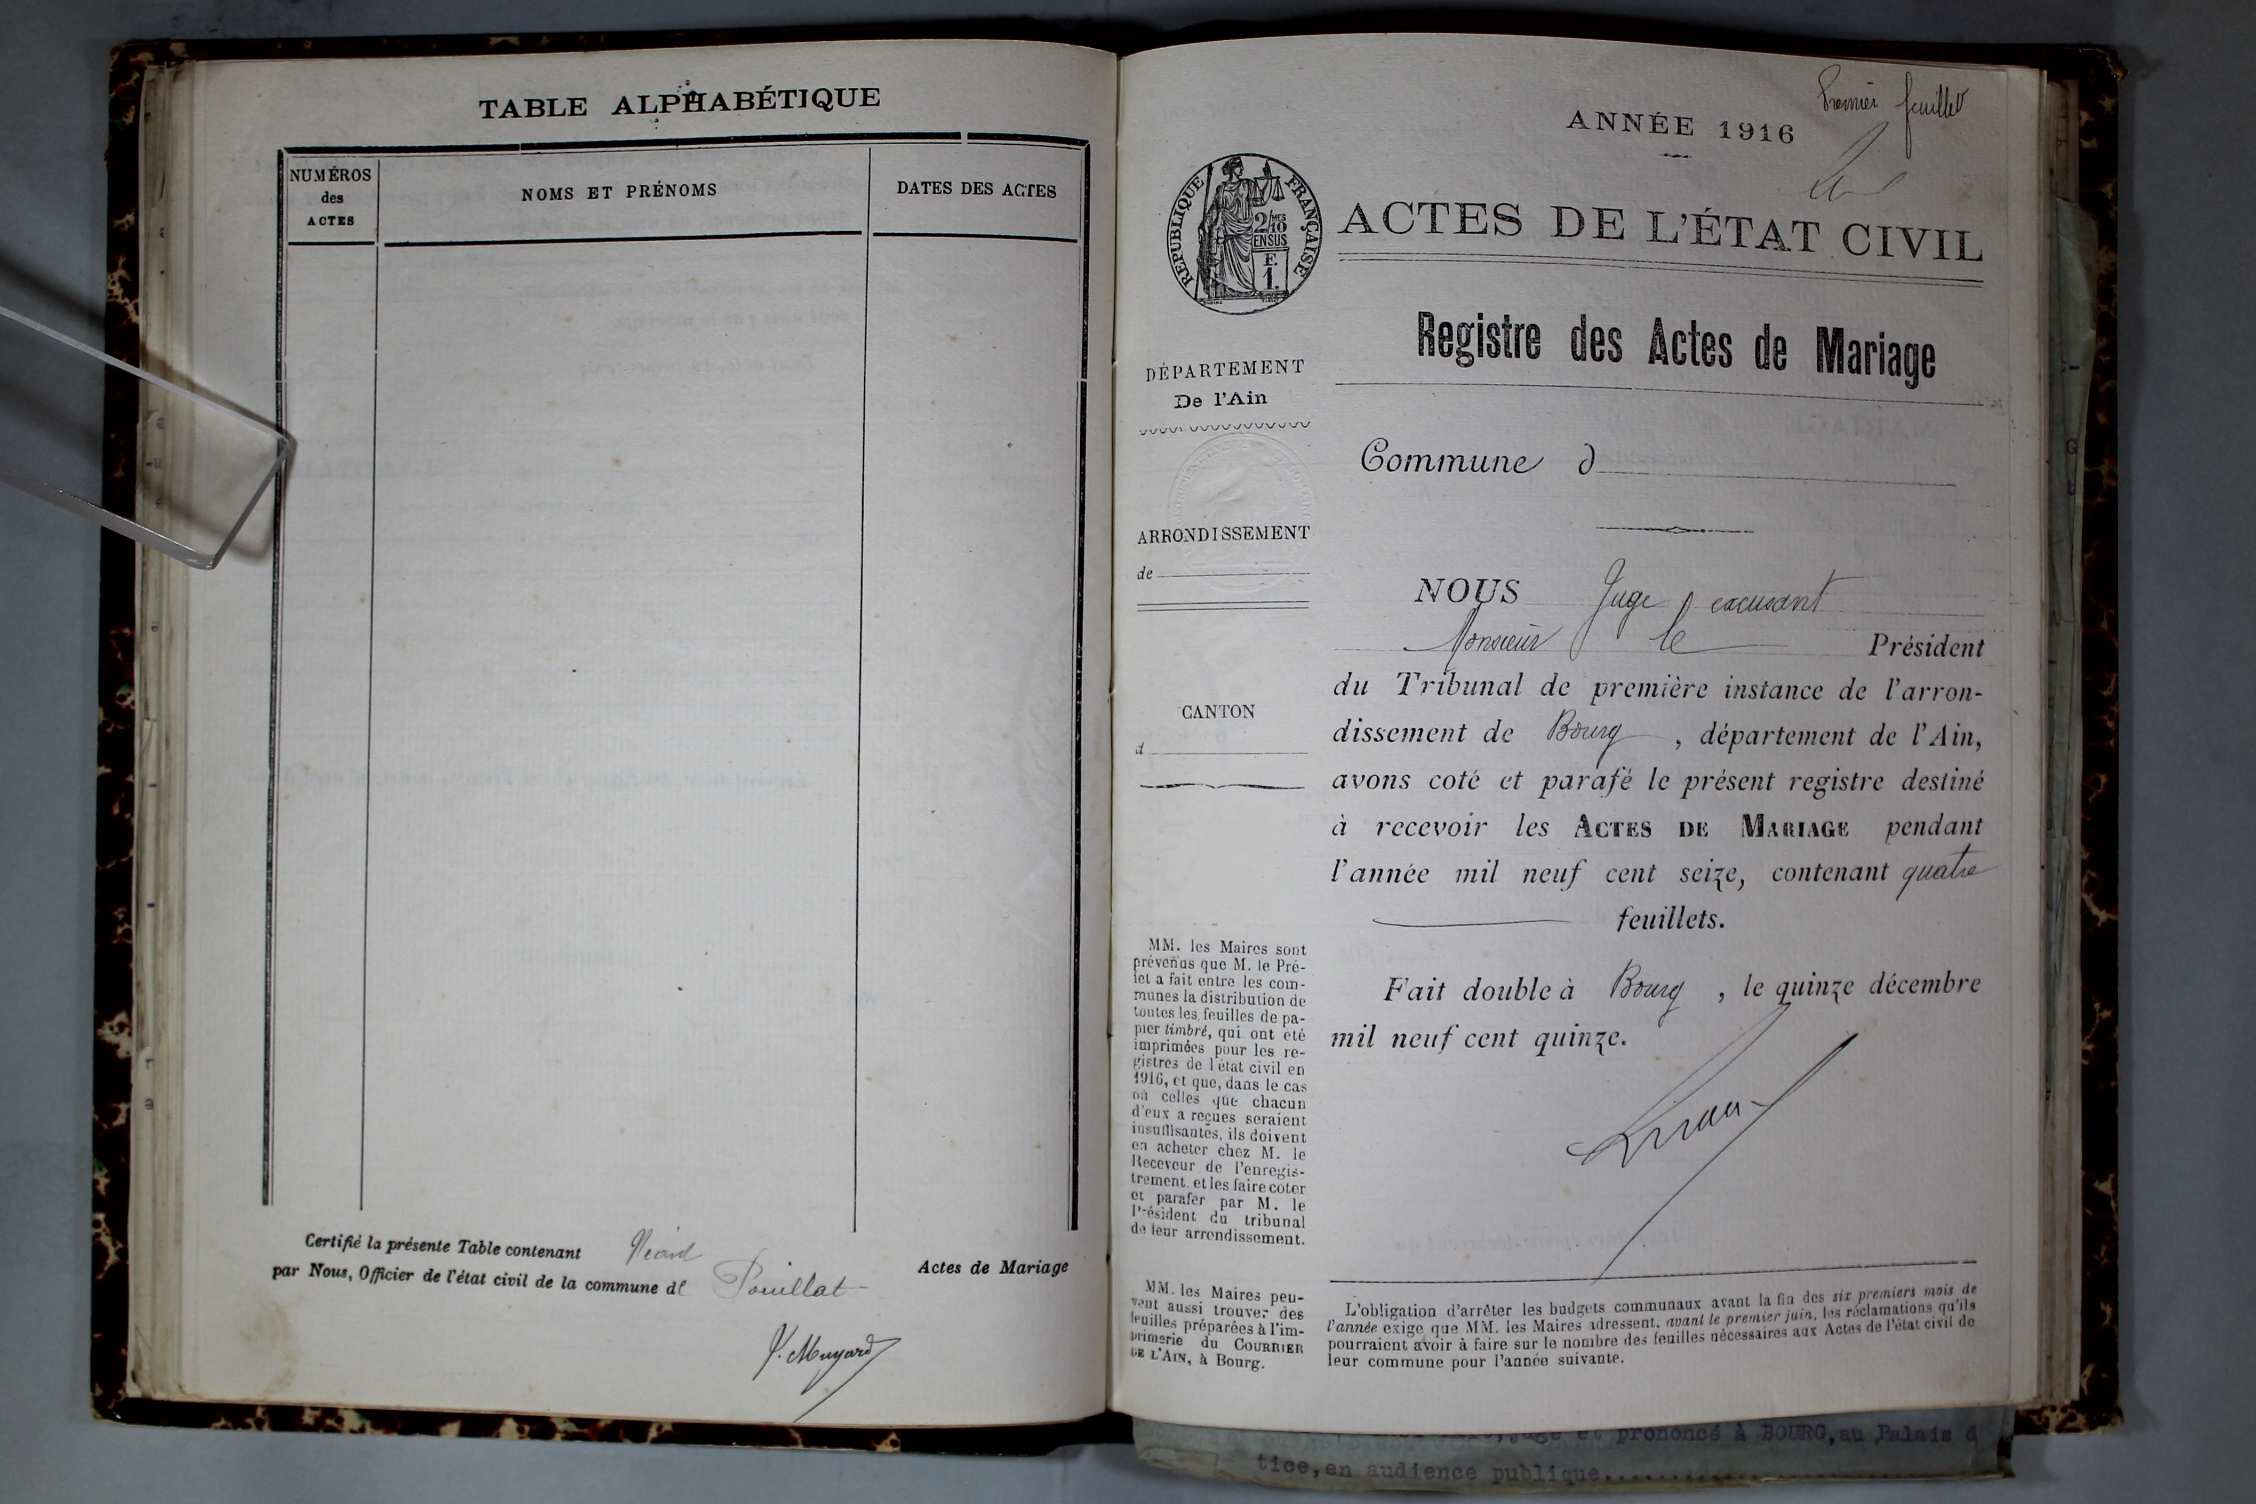 TABLE ALPHABÉTIQUE
NUMÉROS
des
ACTES
NOMS ET PRÉNOMS
DATES DES ACTES
Certifié la présente Table contenant Néant
Actes de Mariage
par Nous, Officier de l'état civil de la commune de Pouillat
Premier feuillet
ANNÉE 1916
RÉPUBLIQUE FRANÇAISE
2/10
EN SUS
F.
1.
ACTES DE L'ÉTAT CIVIL
Registre des Actes de Mariage
DÉPARTEMENT
De l'Ain
ARRONDISSEMENT
de
CANTON
d
MM. les Maires sont
prévenus que M. le Pré-
fet a fait entre les com-
munes la distribution de
toutes les feuilles de pa-
pier timbré, qui ont été
imprimées pour les re-
gistres de l'état civil en
1916, et que, dans le cas
où celles que chacun
d'eux a reçues seraient
insuffisantes, ils doivent
en acheter chez M. le
Receveur de l'enregis-
trement, et les faire coter
et parafer par M. le
Président du tribunal
de leur arrondissement.
MM. les Maires peu-
vent aussi trouver des
feuilles préparées à l'im-
primerie du COURRIER
DE L'AIN, à Bourg.
Commune d
NOUS Juge excusant
Monsieur le Président
du Tribunal de première instance de l'arron-
dissement de Bourg, département de l'Ain,
avons coté et parafé le présent registre destiné
à recevoir les ACTES DE MARIAGE pendant
l'année mil neuf cent seize, contenant quatre
feuillets.
Fait double à Bourg, le quinze décembre
mil neuf cent quinze.
L'obligation d'arrêter les budgets communaux avant la fin des six premiers mois de
l'année exige que MM. les Maires adressent, avant le premier juin, les réclamations qu'ils
pourraient avoir à faire sur le nombre des feuilles nécessaires aux Actes de l'état civil de
leur commune pour l'année suivante.
juge et prononcé à BOURG,au Palais d
tice,en audience publique